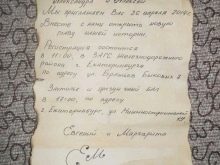 Александра и Алексей
Мы приглашаем Вас 25 апреля 2014г.
Вместе с нами открыть новую
главу нашей истории.
Регистрация состоится
в 15:00, в ЗАГС Железнодорожного
района г. Екатеринбурга
по адресу ул Братьев Быковых
Застолье и
в 16:00, по адресу
г. Екатеринбург, ул
Евгений и Маргарита
ЕМ